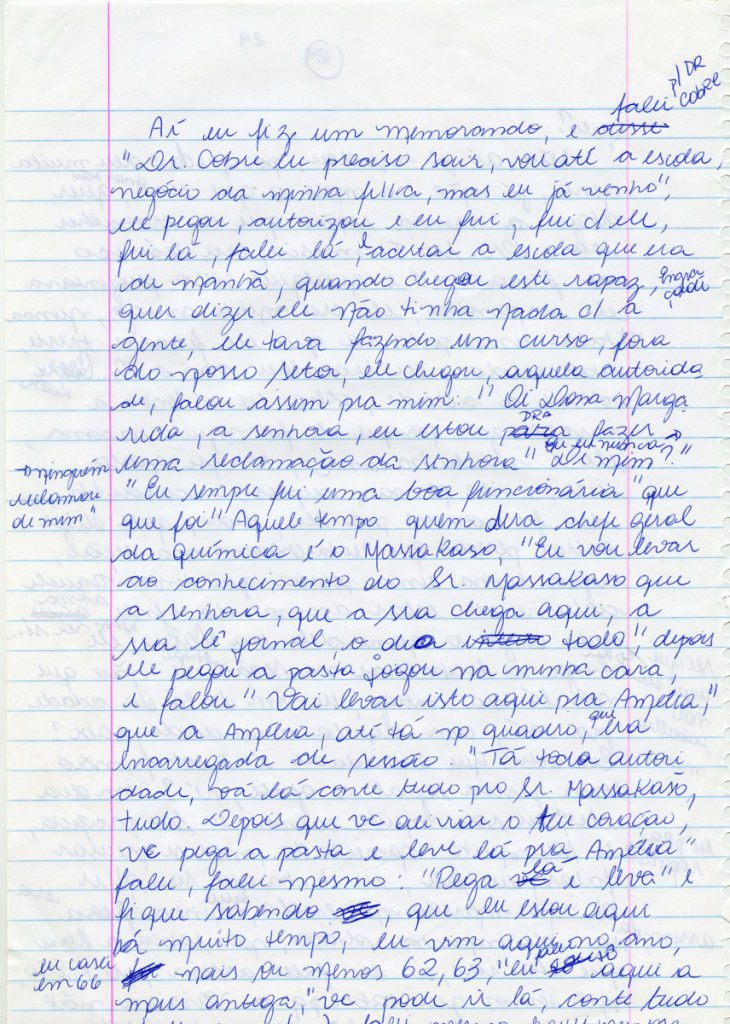 p/ DR
falei cobre
Aí eu fiz um memorando, e disse
"Dr. Cobre eu preciso sair, vou até a escola,
negócio da minha filha, mas eu já venho",
ele pegou, autorizou e eu fui, fui c/ ele,
fui lá, falei lá, e acertar a escola que era
de manhã, quando chegou este rapaz,
quer dizer ele não tinha nada c/ a
gente, ele tava fazendo um curso, fora
do nosso setor, ele chegou, aquela autorida
de, falou assim pra mim: "Oi Dona Marga
rida, a senhora, eu estou para DRA fazer
uma reclamação da senhora" "De mim?"
→ ninguém
reclamou
de mim"
"Eu sempre fui uma boa funcionária" "que
que foi" Aquele tempo quem era chefe geral
da química é o Massakaso, "Eu vou levar
ao conhecimento do Sr. Massakaso que
a senhora, que a sra chega aqui, a
sra lê jornal o dia todo", depois
ele pegou a pasta jogou na minha cara,
e falou "Vai levar isto aqui pra Amélia,"
que a Amélia, até tá no quadro, que era
Encarregada de sessão. "Tá toda autori
dade, vá lá conte tudo pro Sr. Massakaso,
tudo. Depois que vc aliviar o teu coração,
vc pega a pasta e leve lá pra Amélia"
falei, falei mesmo: "Pega vc lá e leva" e
fique sabendo, que eu estou aqui
há muito tempo, eu vim aqui no ano,
eu casei
em 66
mais ou menos 62, 63, "eu sou aqui a
mais antiga," vc pode ir lá conte tudo